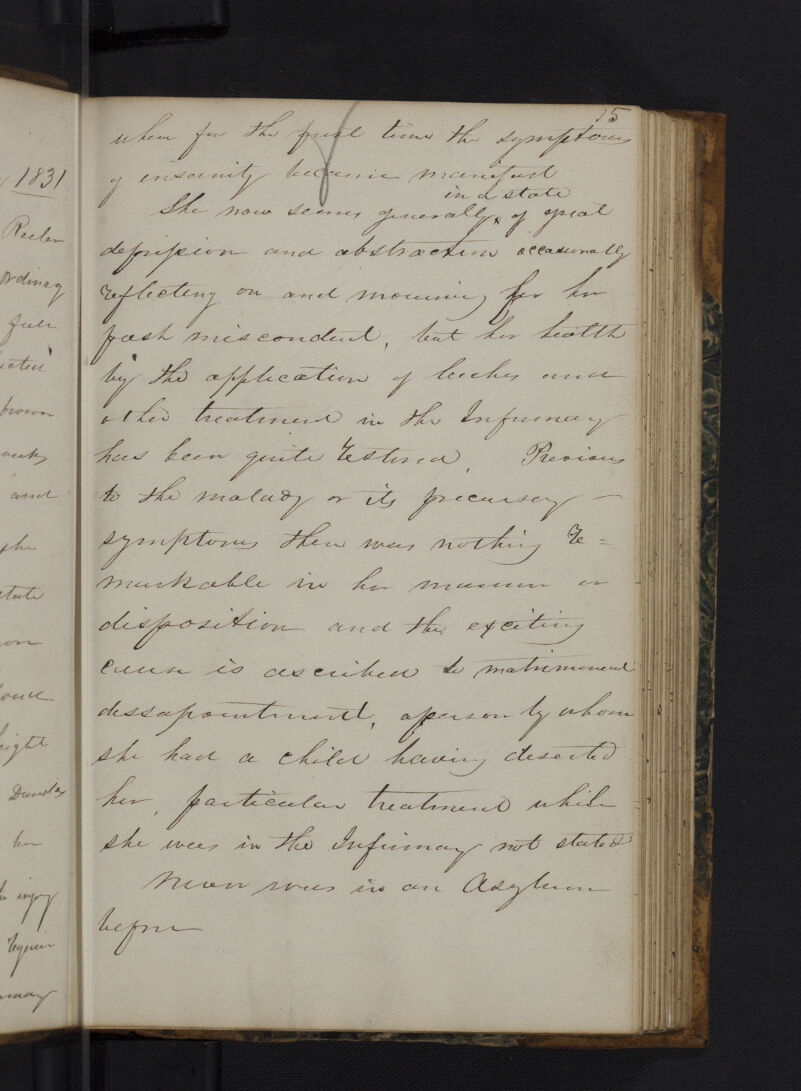 1831
Reeler
ordinary
and
state
Dundas
her
injury
15
when for the first time the symptoms
of insanity became manifest
in a state
She now seems generally x of great
depression and abstraction occasionally
reflecting on and mourning for her
past misconduct, but her health
by the application of leeches and
other treatment in the Infirmary
has been quite restored. Previous
to the malady or its precursory
symptoms there was nothing re=
markable in her manner or
disposition and the exciting
cause is ascribed to matrimonial
dissapointment, a person by whom
she had a child having deserted
her, particular treatment while
she was in the Infirmary not stated
Never was in an Asylum
before